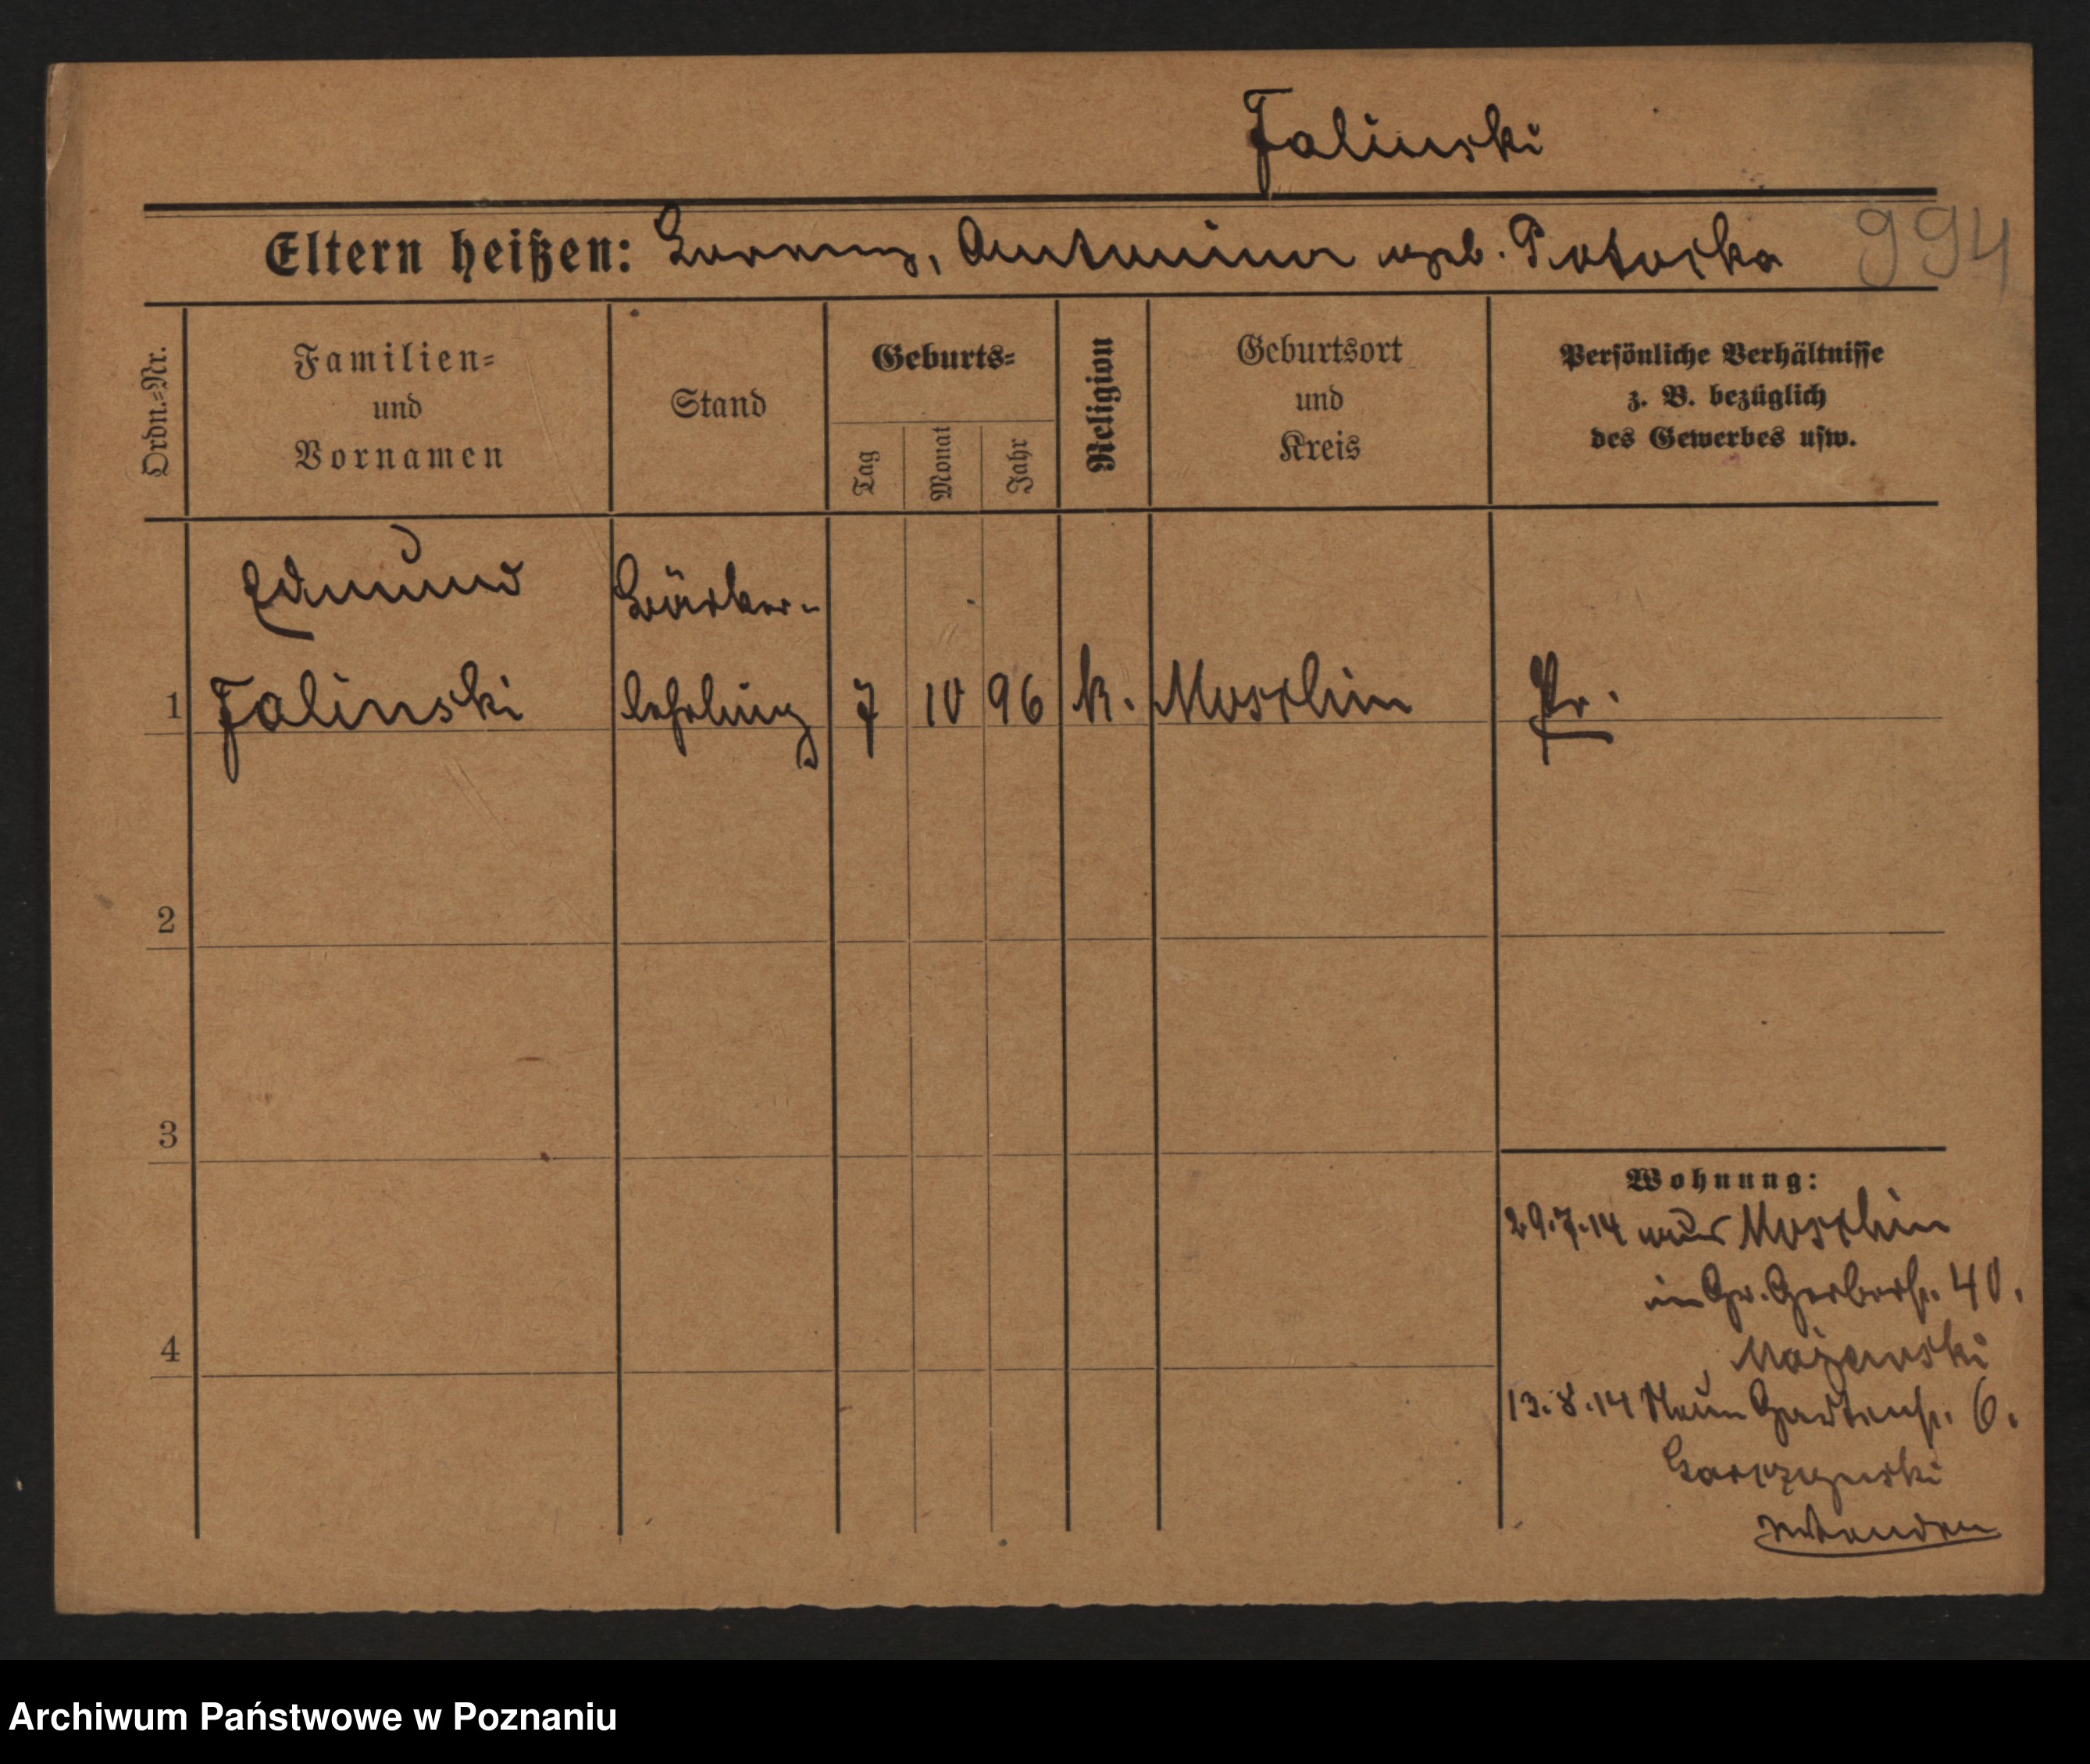 Falinski
Eltern heißen: Lorenz, Antonina geb. Potocka
994
Ordn.=Nr.
Familien=
und
Vornamen
Stand
Geburts=
Tag
Monat
Jahr
Religion
Geburtsort
und
Kreis
Persönliche Verhältnisse
z. B. bezüglich
des Gewerbes usw.
Edmund
Falinski
lehrling
1
7
10
96
k.
Moschin
Pr.
2
3
4
Wohnung:
29.7.14 aus Moschin
in Gr. Gerberstr. 40.
Majewski
13.8.14 Neue Gartenstr. 6.
Garczynski
wenden
Archiwum Państwowe w Poznaniu